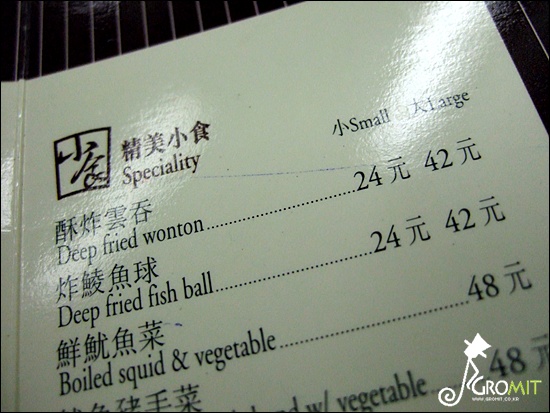 小食
精美小食
Speciality
小Small 大Large
酥炸雲吞
Deep fried wonton 24元 42元
炸鯪魚球
Deep fried fish ball 24元 42元
鮮魷魚菜
Boiled squid & vegetable 48元
豬手菜
w/ vegetable 48元
GROMIT
WWW.GROMIT.CO.KR